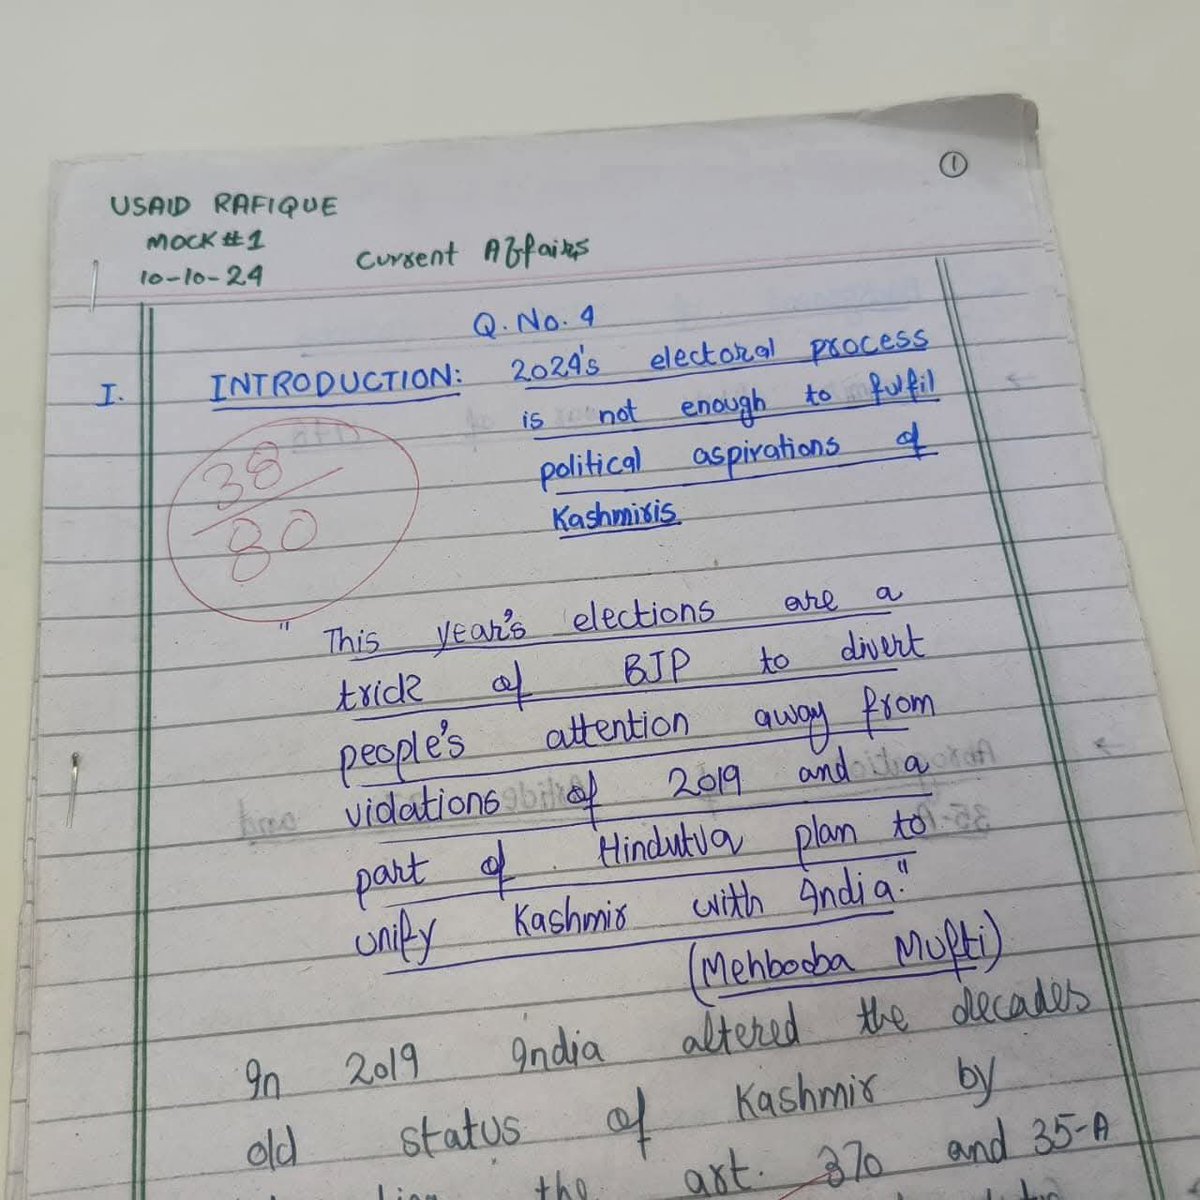 1
USAID RAFIQUE
MOCK #1
10-10-24
Current Affairs
Q. No. 4
I. INTRODUCTION: 2024's electoral process
is not enough to fulfil
political aspirations of
Kashmiris
38/80
"This year's elections are a
trick of BJP to divert
people's attention away from
violations of 2019 and a
part of Hindutva plan to
unify Kashmir with India."
(Mehbooba Mufti)
In 2019 India altered the decades
old status of Kashmir by
the art. 370 and 35-A